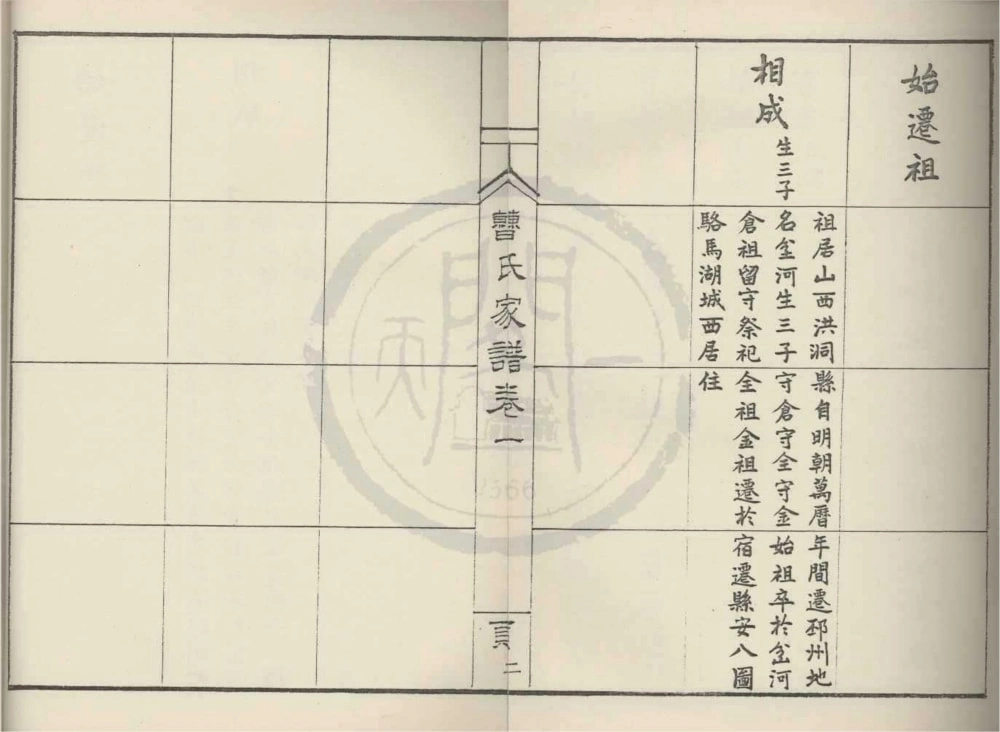 始遷祖
相成生三子
祖居山西洪洞縣自明朝萬曆年間遷邳州地
名坌河生三子守倉守全守金始祖卒於坌河
倉祖留守祭祀全祖金祖遷於宿遷縣安八圖
駱馬湖城西居住
曹氏家譜卷一
頁二
天閣一
1566